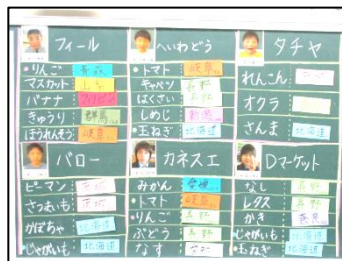 フィール
•りんご 青森
マスカット
バナナ フィリピン
きゅうり 群馬
ほうれんそう 岐阜
へいわどう
•トマト 岐阜
キャベツ 長野
はくさい 長野
しめじ 新潟
•玉ねぎ 北海道
タチヤ
れんこん
オクラ
さんま 北海道
バロー
ピーマン 茨城
さつまいも 茨城
かぼちゃ 北海道
•じゃがいも 北海道
カネスエ
みかん 愛媛
•トマト 岐阜
•りんご 長野
ぶどう 長野
なす
Dマーケット
なし 長野
レタス 長野
かき
•じゃがいも 北海道
•玉ねぎ 北海道